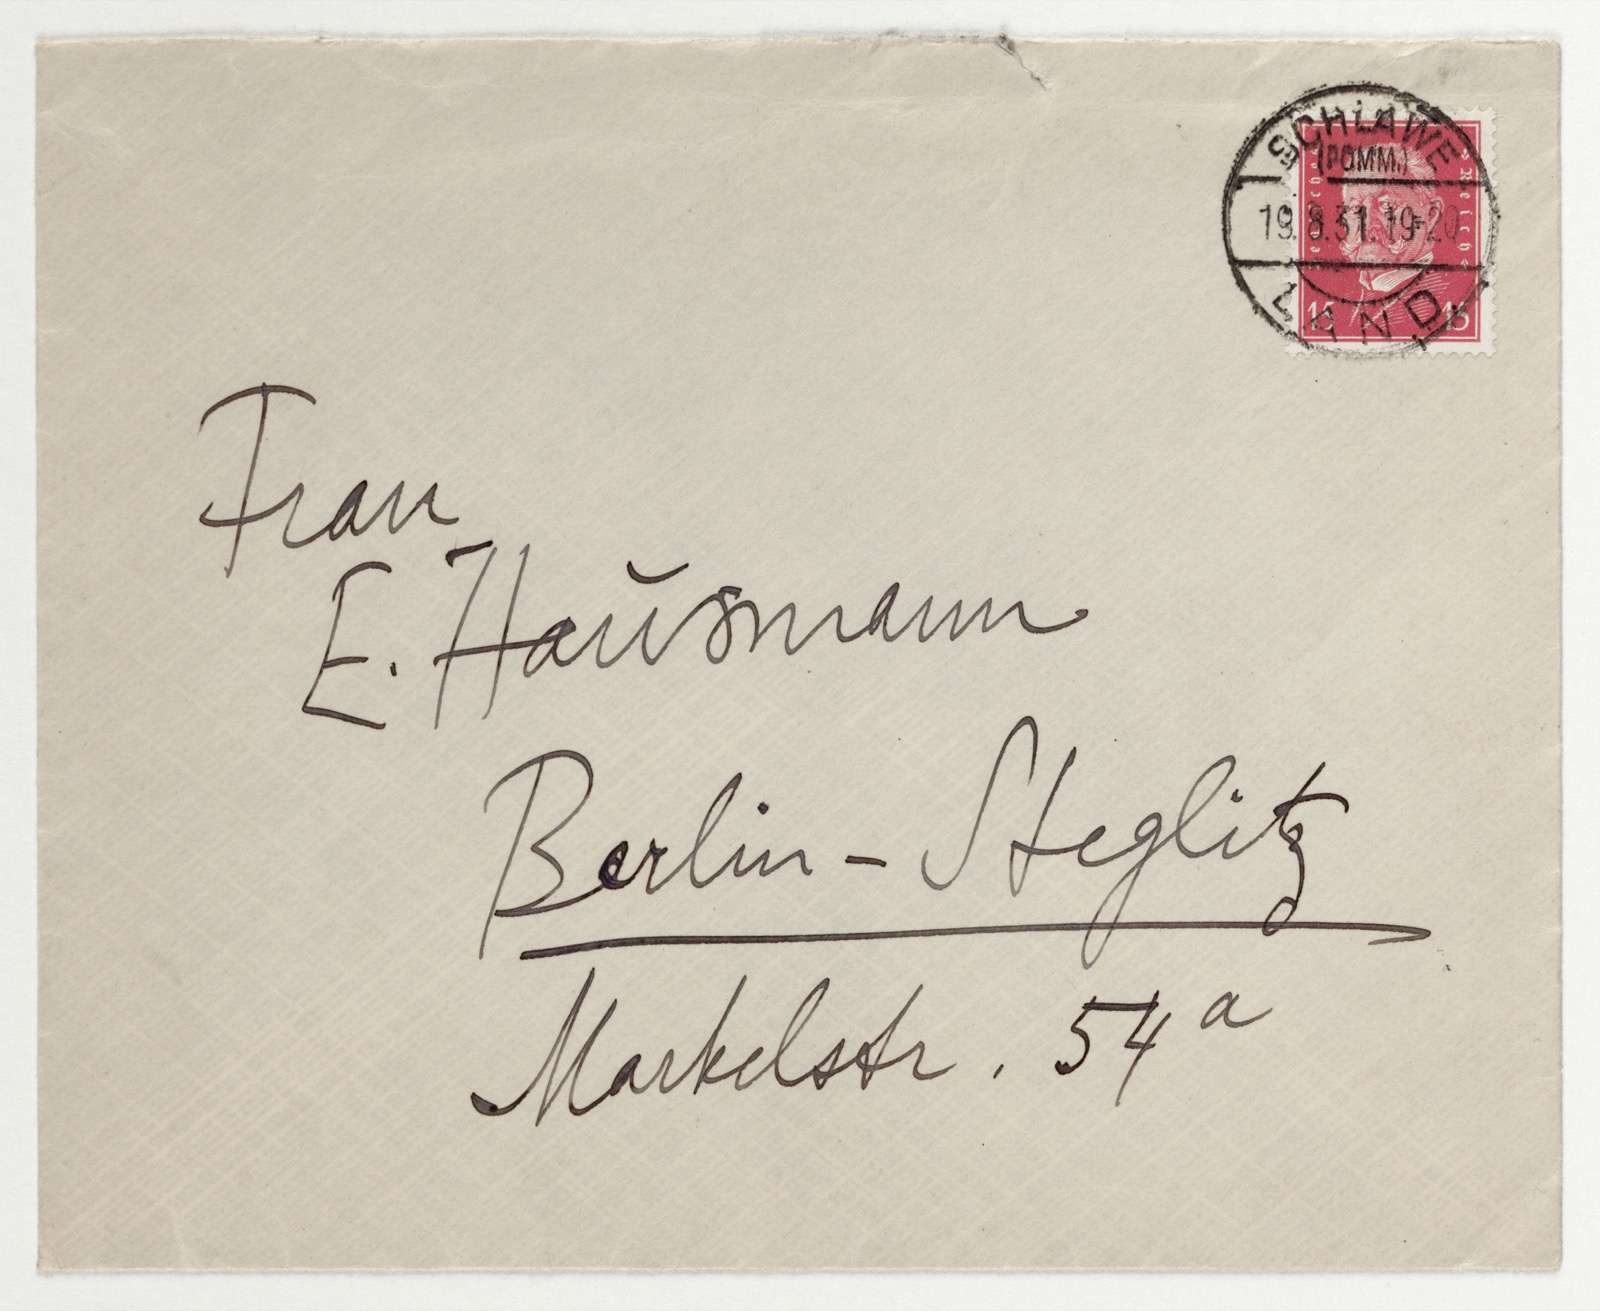 SCHLAWE
(POMM.)
19.8.31.19-20
LAND
Reich
15 15
Frau
E. Hausmann
Berlin-Steglitz
Markelstr. 54a